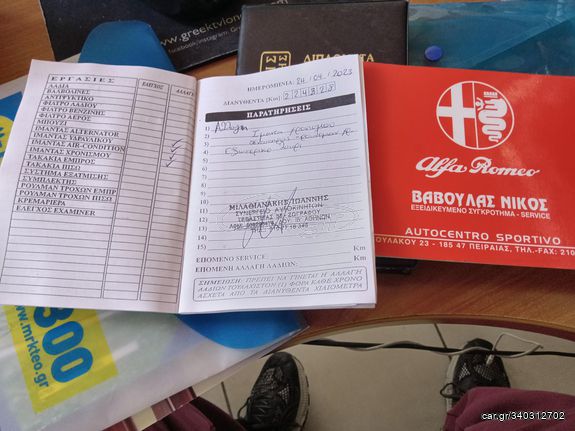 www.greektvlone
facebook, instagram: Gree
ΔΙΠΛΩΜΑΤΑ
ΕΡΓΑΣΙΕΣ
ΕΛΕΓΧΟΣ
ΑΛΛΑΓΗ
ΛΑΔΙΑ
ΒΑΛΒΟΛΙΝΕΣ
ΑΝΤΙΨΥΚΤΙΚΟ
ΦΙΛΤΡΟ ΛΑΔΙΟΥ
ΦΙΛΤΡΟ ΒΕΝΖΙΝΗΣ
ΦΙΛΤΡΟ ΑΕΡΟΣ
ΜΠΟΥΖΙ
ΙΜΑΝΤΑΣ ALTERNATOR
ΙΜΑΝΤΑΣ ΥΔΡΑΥΛΙΚΟΥ
ΙΜΑΝΤΑΣ AIR-CONDITION
ΙΜΑΝΤΑΣ ΧΡΟΝΙΣΜΟΥ
ΤΑΚΑΚΙΑ ΕΜΠΡΟΣ
ΤΑΚΑΚΙΑ ΠΙΣΩ
ΣΥΣΤΗΜΑ ΕΞΑΤΜΙΣΗΣ
ΣΥΜΠΛΕΚΤΗΣ
ΡΟΥΛΜΑΝ ΤΡΟΧΩΝ ΕΜΠΡ
ΡΟΥΛΜΑΝ ΤΡΟΧΩΝ ΠΙΣΩ
ΚΡΕΜΑΡΙΕΡΑ
ΕΛΕΓΧΟΣ EXAMINER
ΗΜΕΡΟΜΗΝΙΑ: 24/04/2023
ΔΙΑΝΥΘΕΝΤΑ (Km)
ΠΑΡΑΤΗΡΗΣΕΙΣ
1) Αλλαγη Ιμαντα χρονισμου
2)
3)
4)
5)
6)
7)
8)
9)
10)
11)
12)
13)
14)
15)
ΜΙΛΑΘΙΑΝΑΚΗΣ ΙΩΑΝΝΗΣ
ΣΥΝΕΡΓΕΙΟ ΑΥΤΟΚΙΝΗΤΩΝ
ΕΠΟΜΕΝΟ SERVICE: Km
ΕΠΟΜΕΝΗ ΑΛΛΑΓΗ ΛΑΔΙΩΝ: Km
ΣΗΜΕΙΩΣΗ: ΠΡΕΠΕΙ ΝΑ ΓΙΝΕΤΑΙ Η ΑΛΛΑΓΗ
ΛΑΔΙΩΝ ΤΟΥΛΑΧΙΣΤΟΝ (1) ΦΟΡΑ ΚΑΘΕ ΧΡΟΝΟ
ΑΣΧΕΤΑ ΑΠΟ ΤΑ ΔΙΑΝΥΘΕΝΤΑ ΧΙΛΙΟΜΕΤΡΑ
Alfa Romeo
ΒΑΒΟΥΛΑΣ ΝΙΚΟΣ
ΕΞΕΙΔΙΚΕΥΜΕΝΟ ΣΥΓΚΡΟΤΗΜΑ - SERVICE
AUTOCENTRO SPORTIVO
ΟΥΛΑΚΟΥ 23 - 185 47 ΠΕΙΡΑΙΑΣ, ΤΗΛ.-FAX: 210
300
www.mrkteo.gr
car.gr/340312702